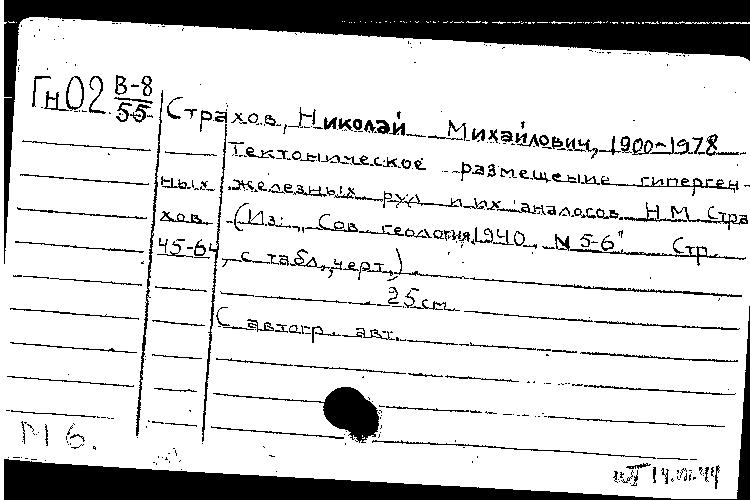 Гн02 В-8
55
Страхов, Николай Михайлович, 1900-1978
Тектоническое размещение гиперген-
ных железных руд и их аналогов Н.М. Стра
хов. (Из: „Сов. геология, 1940, № 5-6". Стр.
45-64, с табл., черт.).
25 см
С автогр. авт.
М 6.
14.VII.44